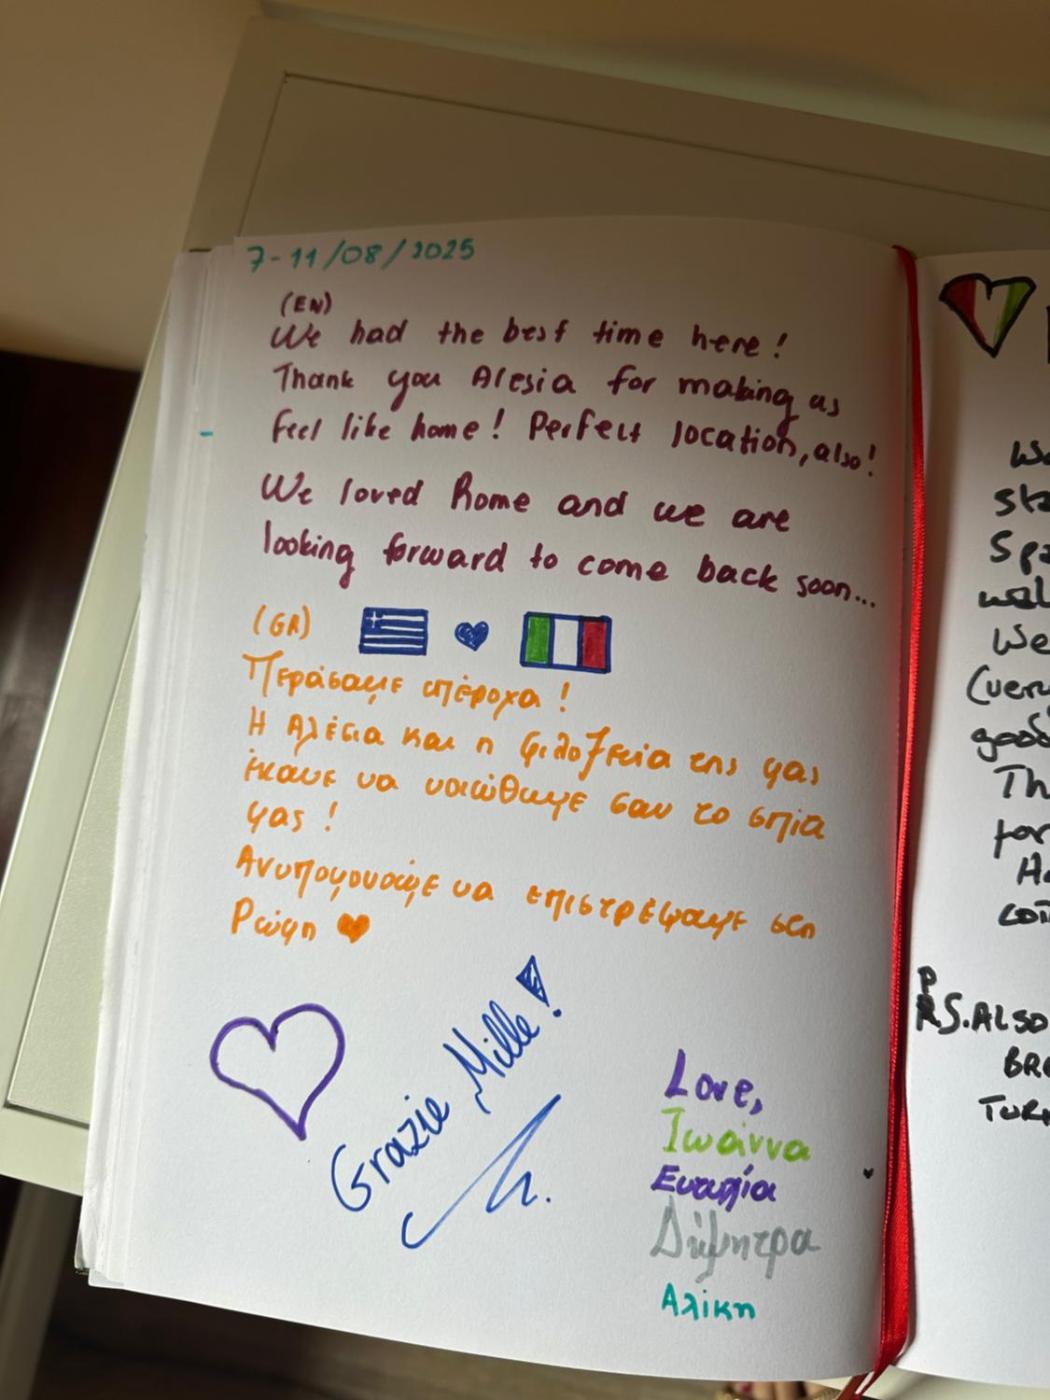 7-11/08/2025
(EN)
We had the best time here!
Thank you Alesia for making us
feel like home! Perfect location, also!
We loved Rome and we are
looking forward to come back soon...
(GR)
Περάσαμε υπέροχα!
Η Αλέσια και η φιλοξενία της μας
έκανε να νοιώθουμε σαν το σπίτι
μας!
Ανυπομονούμε να επιστρέψουμε στη
Ρώμη
Grazie Mille!
Love,
Ιωάννα
Δήμητρα
Αλίκη
We
Spa
We
good
Th
for
P.S. ALSO
BRE
TUR